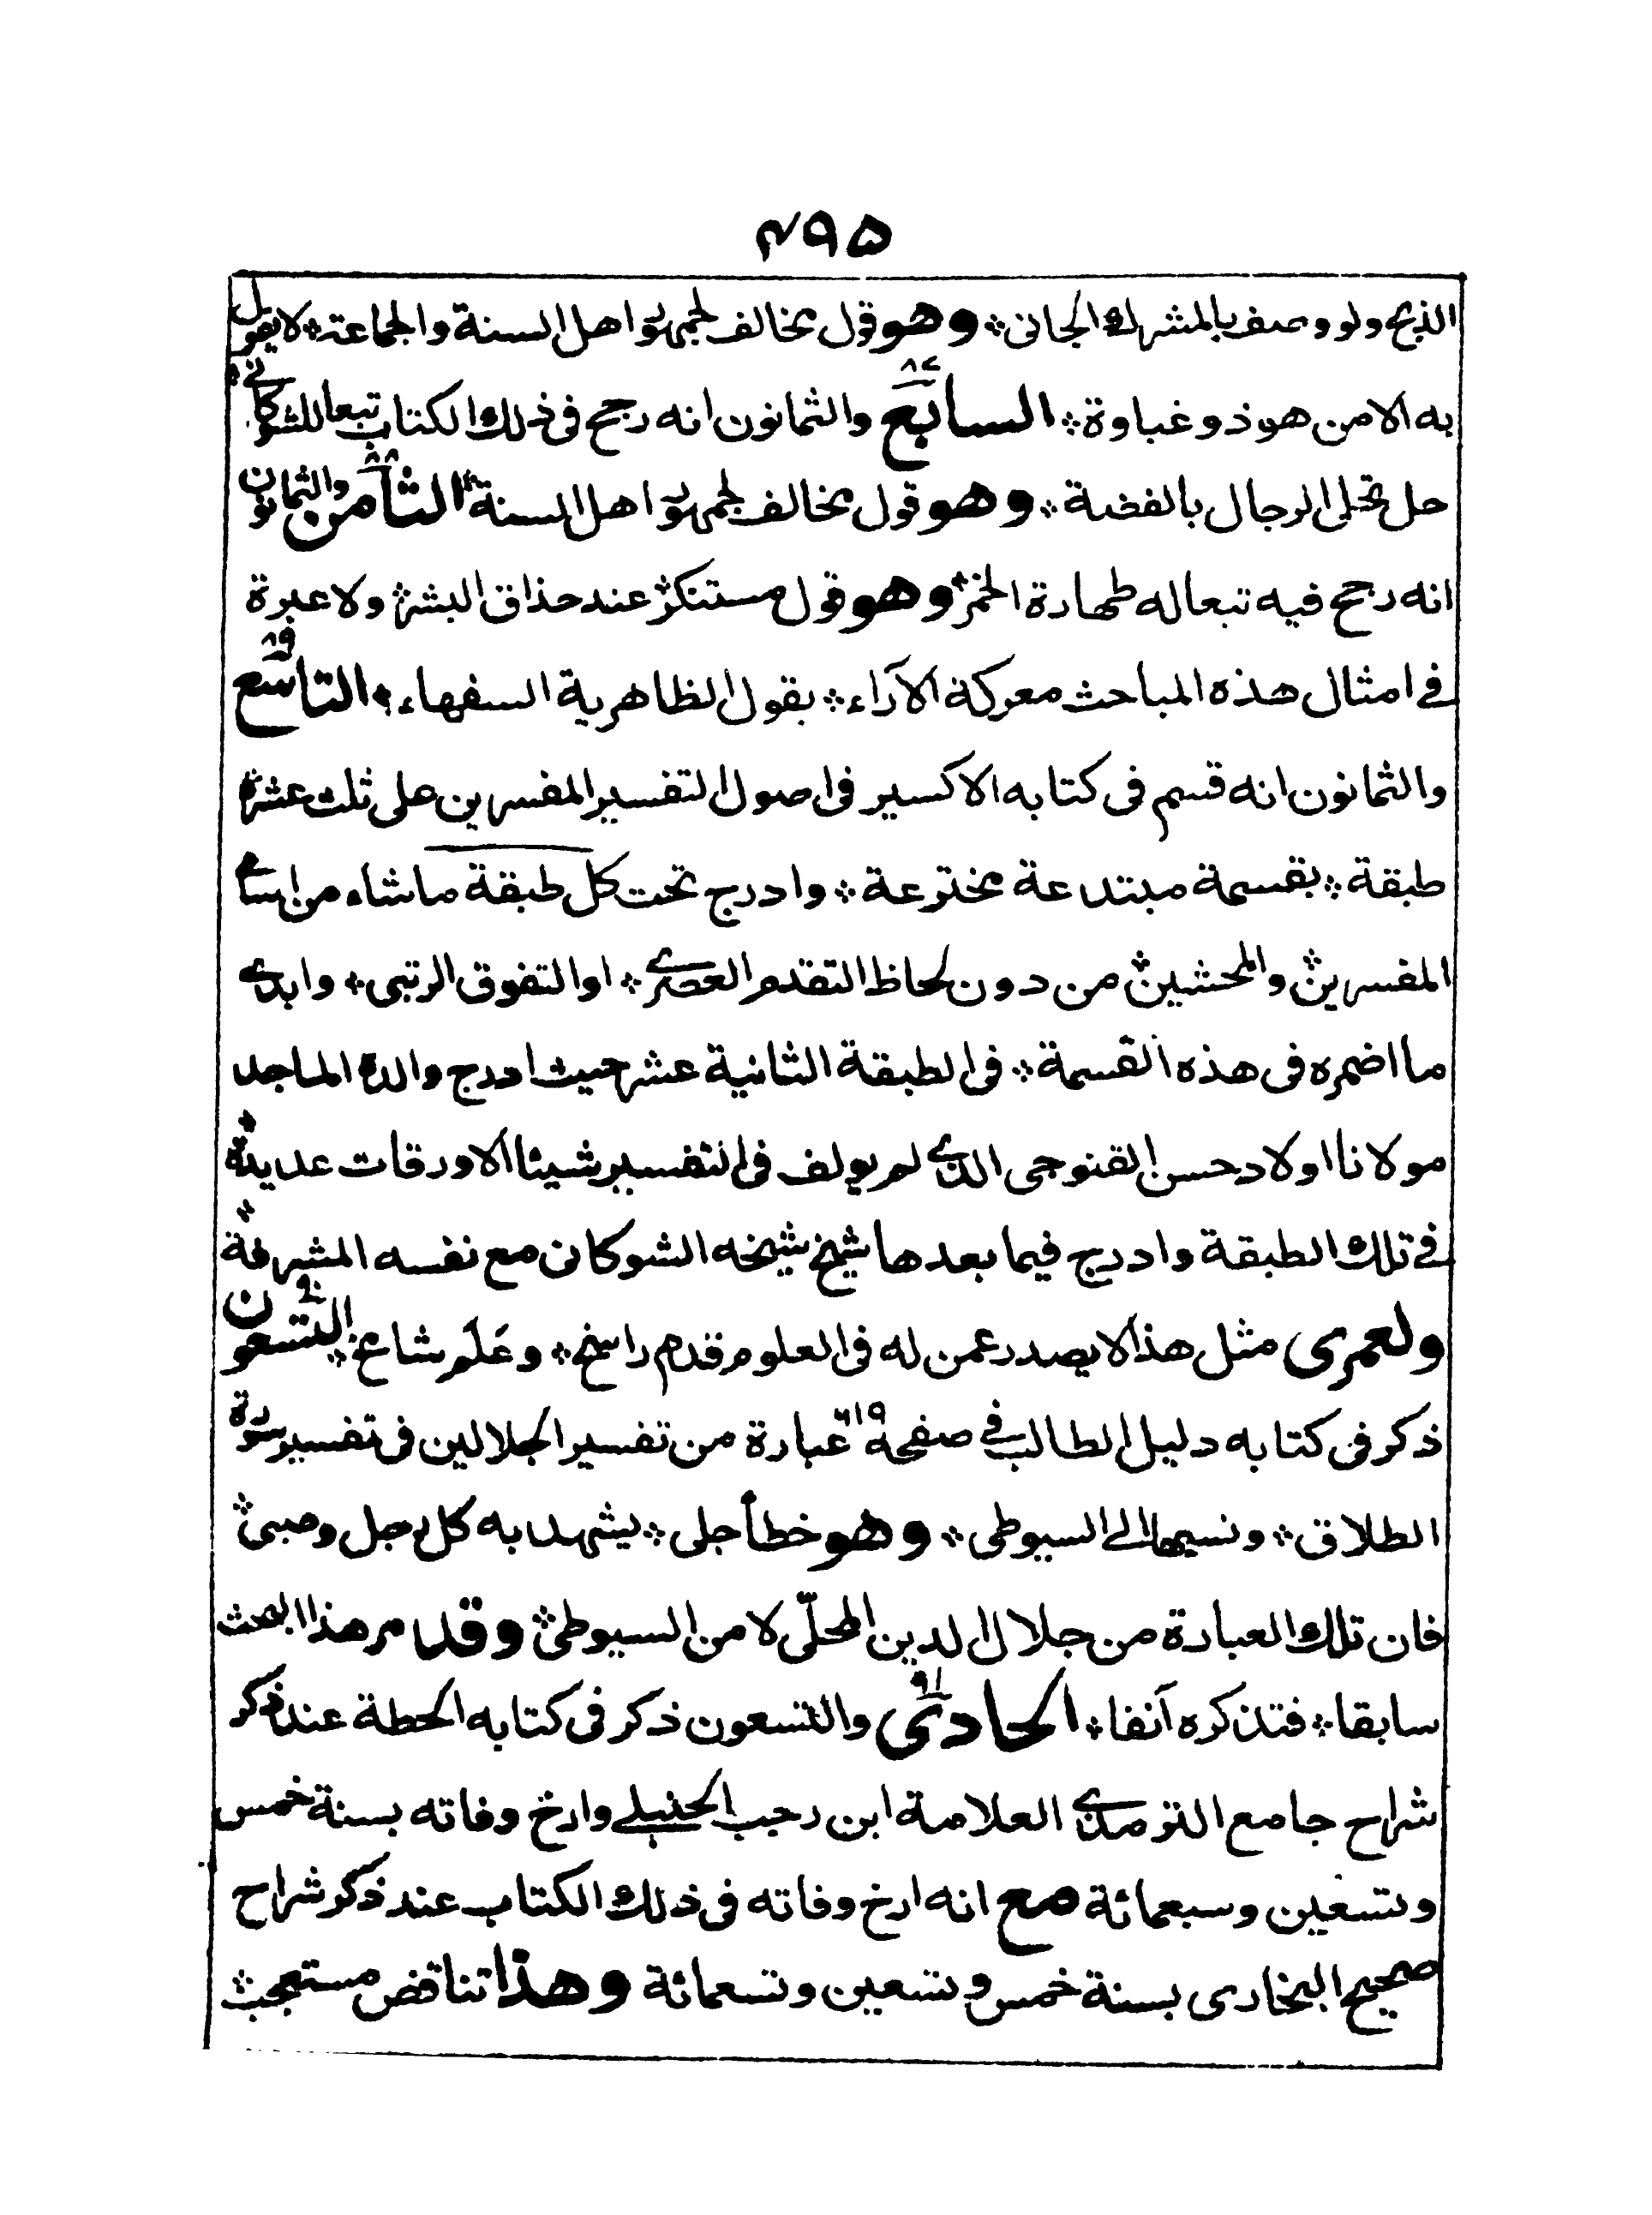 ۴۹۵
الذبح ولو وصف بالمشرك الجانى؞ وهو قول مخالف لجمهور اهل السنة والجماعة؞ لا يقول
به الا من هو ذو غباوة؞ السابع ۸۷ والثمانون انه رجح فى ذلك الكتاب تبعا للشوكانے؞
حل تحلى الرجال بالفضة؞ وهو قول مخالف لجمهور اهل السنة؞ الثامن ۸۸ والثمانون
انه رجح فيه تبعا له طهارة الخمر؞ وهو قول مستنكر؞ عند حذاق البشر؞ ولا عبرة
فے امثال هذه المباحث معركة الآراء؞ بقول الظاهرية السفهاء؞ التاسع ۸۹
والثمانون انه قسم فى كتابه الاكسير فى اصول التفسير المفسرين على ثلث عشرة
طبقة؞ بقسمة مبتدعة مخترعة؞ وادرج تحت كل طبقة ماشاء من اسامے
المفسرين؞ والمحشين؞ من دون لحاظ التقدم العصرے؞ او التفوق الرتبى؞ وابدے
ما اضمره فى هذه القسمة؞ فى الطبقة الثانية عشر حيث ادرج والده الماجد
مولانا اولاد حسن القنوجى الذے لم يولف فى التفسير شيئا الا ورقات عديدة؞
فے تلك الطبقة وادرج فيما بعدها شيخ شيخه الشوكانى مع نفسه المشرفة؞
ولعمرى مثل هذا لا يصدر عمن له فى العلوم قدم راسخ؞ وعَلَم شامخ؞ التسعون ۹۰
ذكر فى كتابه دليل الطالب فے صفحة ۶۱۹ عبارة من تفسير الجلالين فى تفسير سورة
الطلاق؞ ونسبها الے السيوطى؞ وهو خطأ جلى؞ يشهد به كل رجل وصبى؞
فان تلك العبارة من جلال الدين المحلّى لا من السيوطى؞ وقد مر هذا البحث
سابقا؞ فتذكره آنفا؞ الحادى ۹۱ والتسعون ذكر فى كتابه الحطة عند ذكر
شراح جامع الترمذے العلامة ابن رجب الحنبلے وارخ وفاته بسنة خمس
وتسعين وسبعمائة مع انه ارخ وفاته فى ذلك الكتاب عند ذكر شراح
صحيح البخارى بسنة خمس وتسعين وتسعمائة وهذا تناقض مستعجب؞